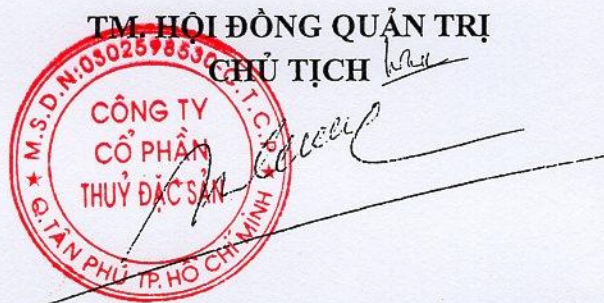 TM. HỘI ĐỒNG QUẢN TRỊ
CHỦ TỊCH
M.S.D.N:0302598530-C.T.C.P
CÔNG TY
CỔ PHẦN
THUỶ ĐẶC SẢN
★ Q.TÂN PHÚ TP. HỒ CHÍ MINH ★